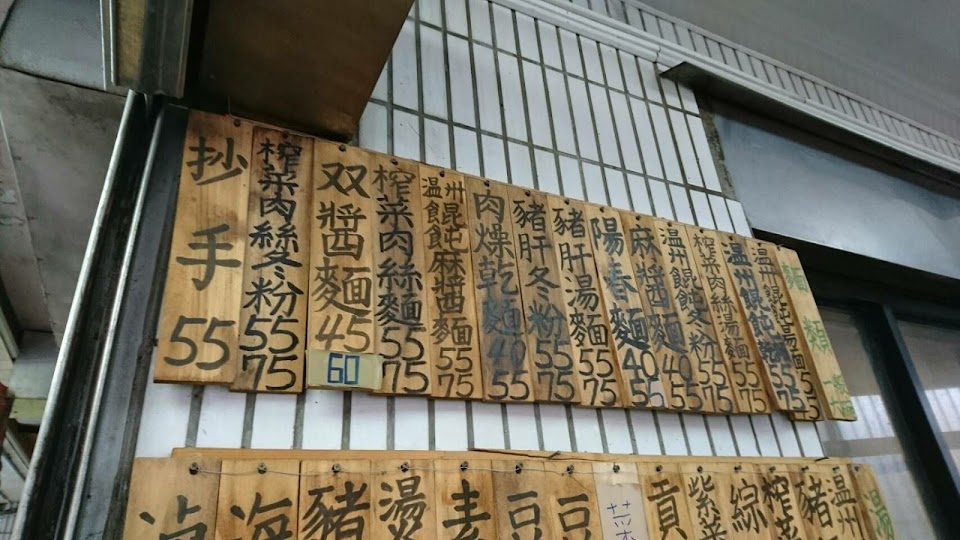 麵類
温州餛飩湯麵
温州餛飩乾麵 55 75
榨菜肉絲湯麵 55 75
温州餛飩冬粉 55 75
麻醬麵 40 55
陽春麵 40 55
豬肝湯麵 55 75
豬肝冬粉 55 75
肉燥乾麵 40 55
温州餛飩麻醬麵 55 75
榨菜肉絲麵 55 75
双醬麵 45 60
榨菜肉絲冬粉 55 75
抄手 55
湯
温州
豬
榨菜
綜
紫菜
貢
豆
豆
素
燙
豬
海